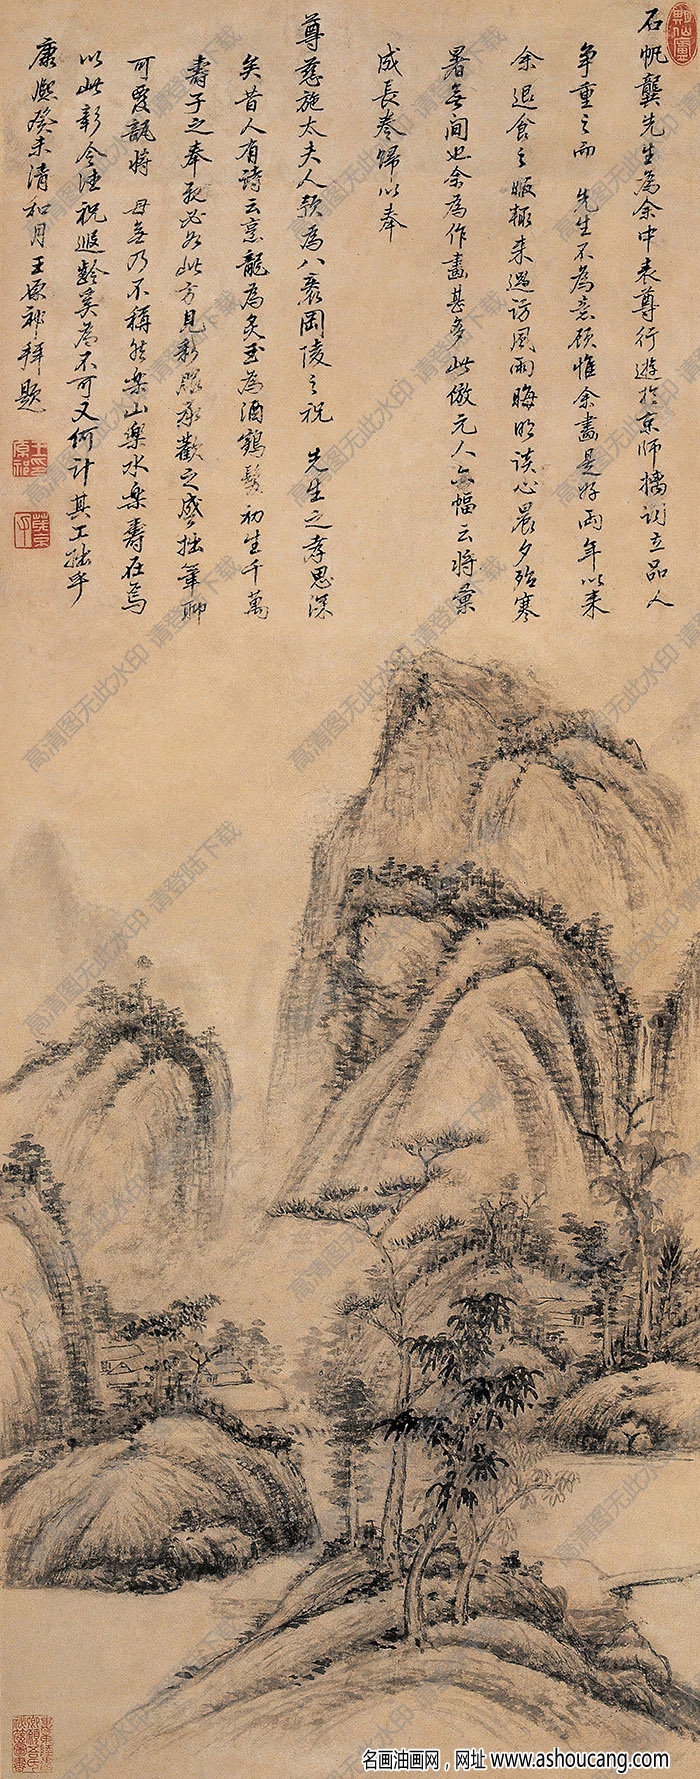 石帆龔先生為余中表尊行遊於京師擕詞立品人
争重之而 先生不為意顧惟余畫是好两年以来
余退食之暇輒来過訪風雨晦明談心晨夕殆寒
暑無間也余為作畫甚多此倣元人六幅云將彙
成長卷歸以奉
尊慈施太夫人欵為八袠岡陵之祝 先生之孝思深
矣昔人有詩云烹龍為炙玉為酒鶴髮初生千萬
壽子之奉親必如此方見彩服承歡之盛拙筆聊
可覆瓿將 母無乃不稱然樂山樂水樂壽在焉
以此彰令德祝遐齡奚為不可又何計其工拙乎
康熙癸未清和月王原祁拜題
王原祁印
茂京
高清图无此水印 请登陆下载
名画油画网，网址 www.ashoucang.com